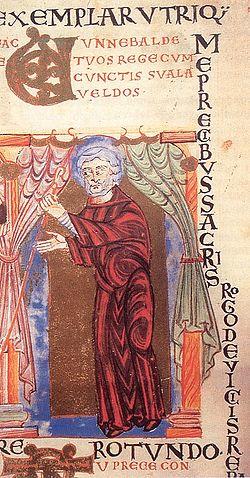 EXEMPLAR VTRIQ;
AC VNNEBALDE
E TVOS REGE CVM
CVNCTIS SVALA
VELDOS.
ME PRECIBVS SACRIS
ROGO DEVICTIS
RE ROTVNDO.
V PRECE CON